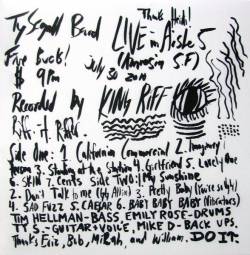 Ty Segall Band Thanks Heidi!
LIVE in Aisle 5
Five Bucks! (Amnesia S.F)
$ 9PM July 30 2010
Recorded by KING RIFF
Side One: 1. California Commercial 2. Imaginary
Person 3. Standing at the station 4. Girlfriend 5. Lovely One
6. SKIN 7. Cents Side TWO: 1. My Sunshine
2. Don't Talk to me (GG Allin) 3. Pretty Baby (You're so
4. SAD FUZZ 5. CAESAR 6. BABY BABY BABY (Vibrators)
TIM HELLMAN-BASS, EMILY ROSE-DRUMS
TY S.-GUITAR+VOICE, MIKE D-BACK UPS.
Thanks Eric, Bob, Mikah, and William. DO IT.